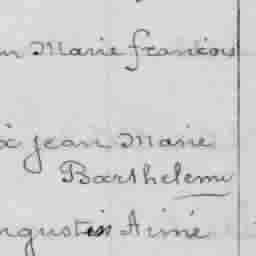 Marie francois
jean Marie
Barthelemi
ugustin Aimé